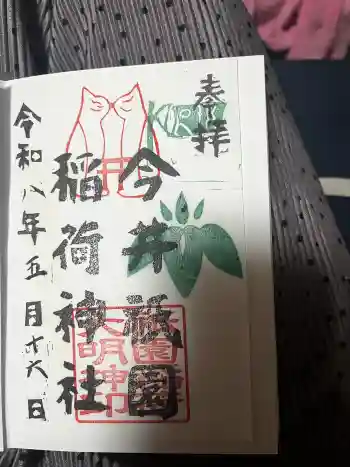 奉拝
KIRIN
今井祇園
稲荷神社
令和八年五月十六日
祇園
大明神印